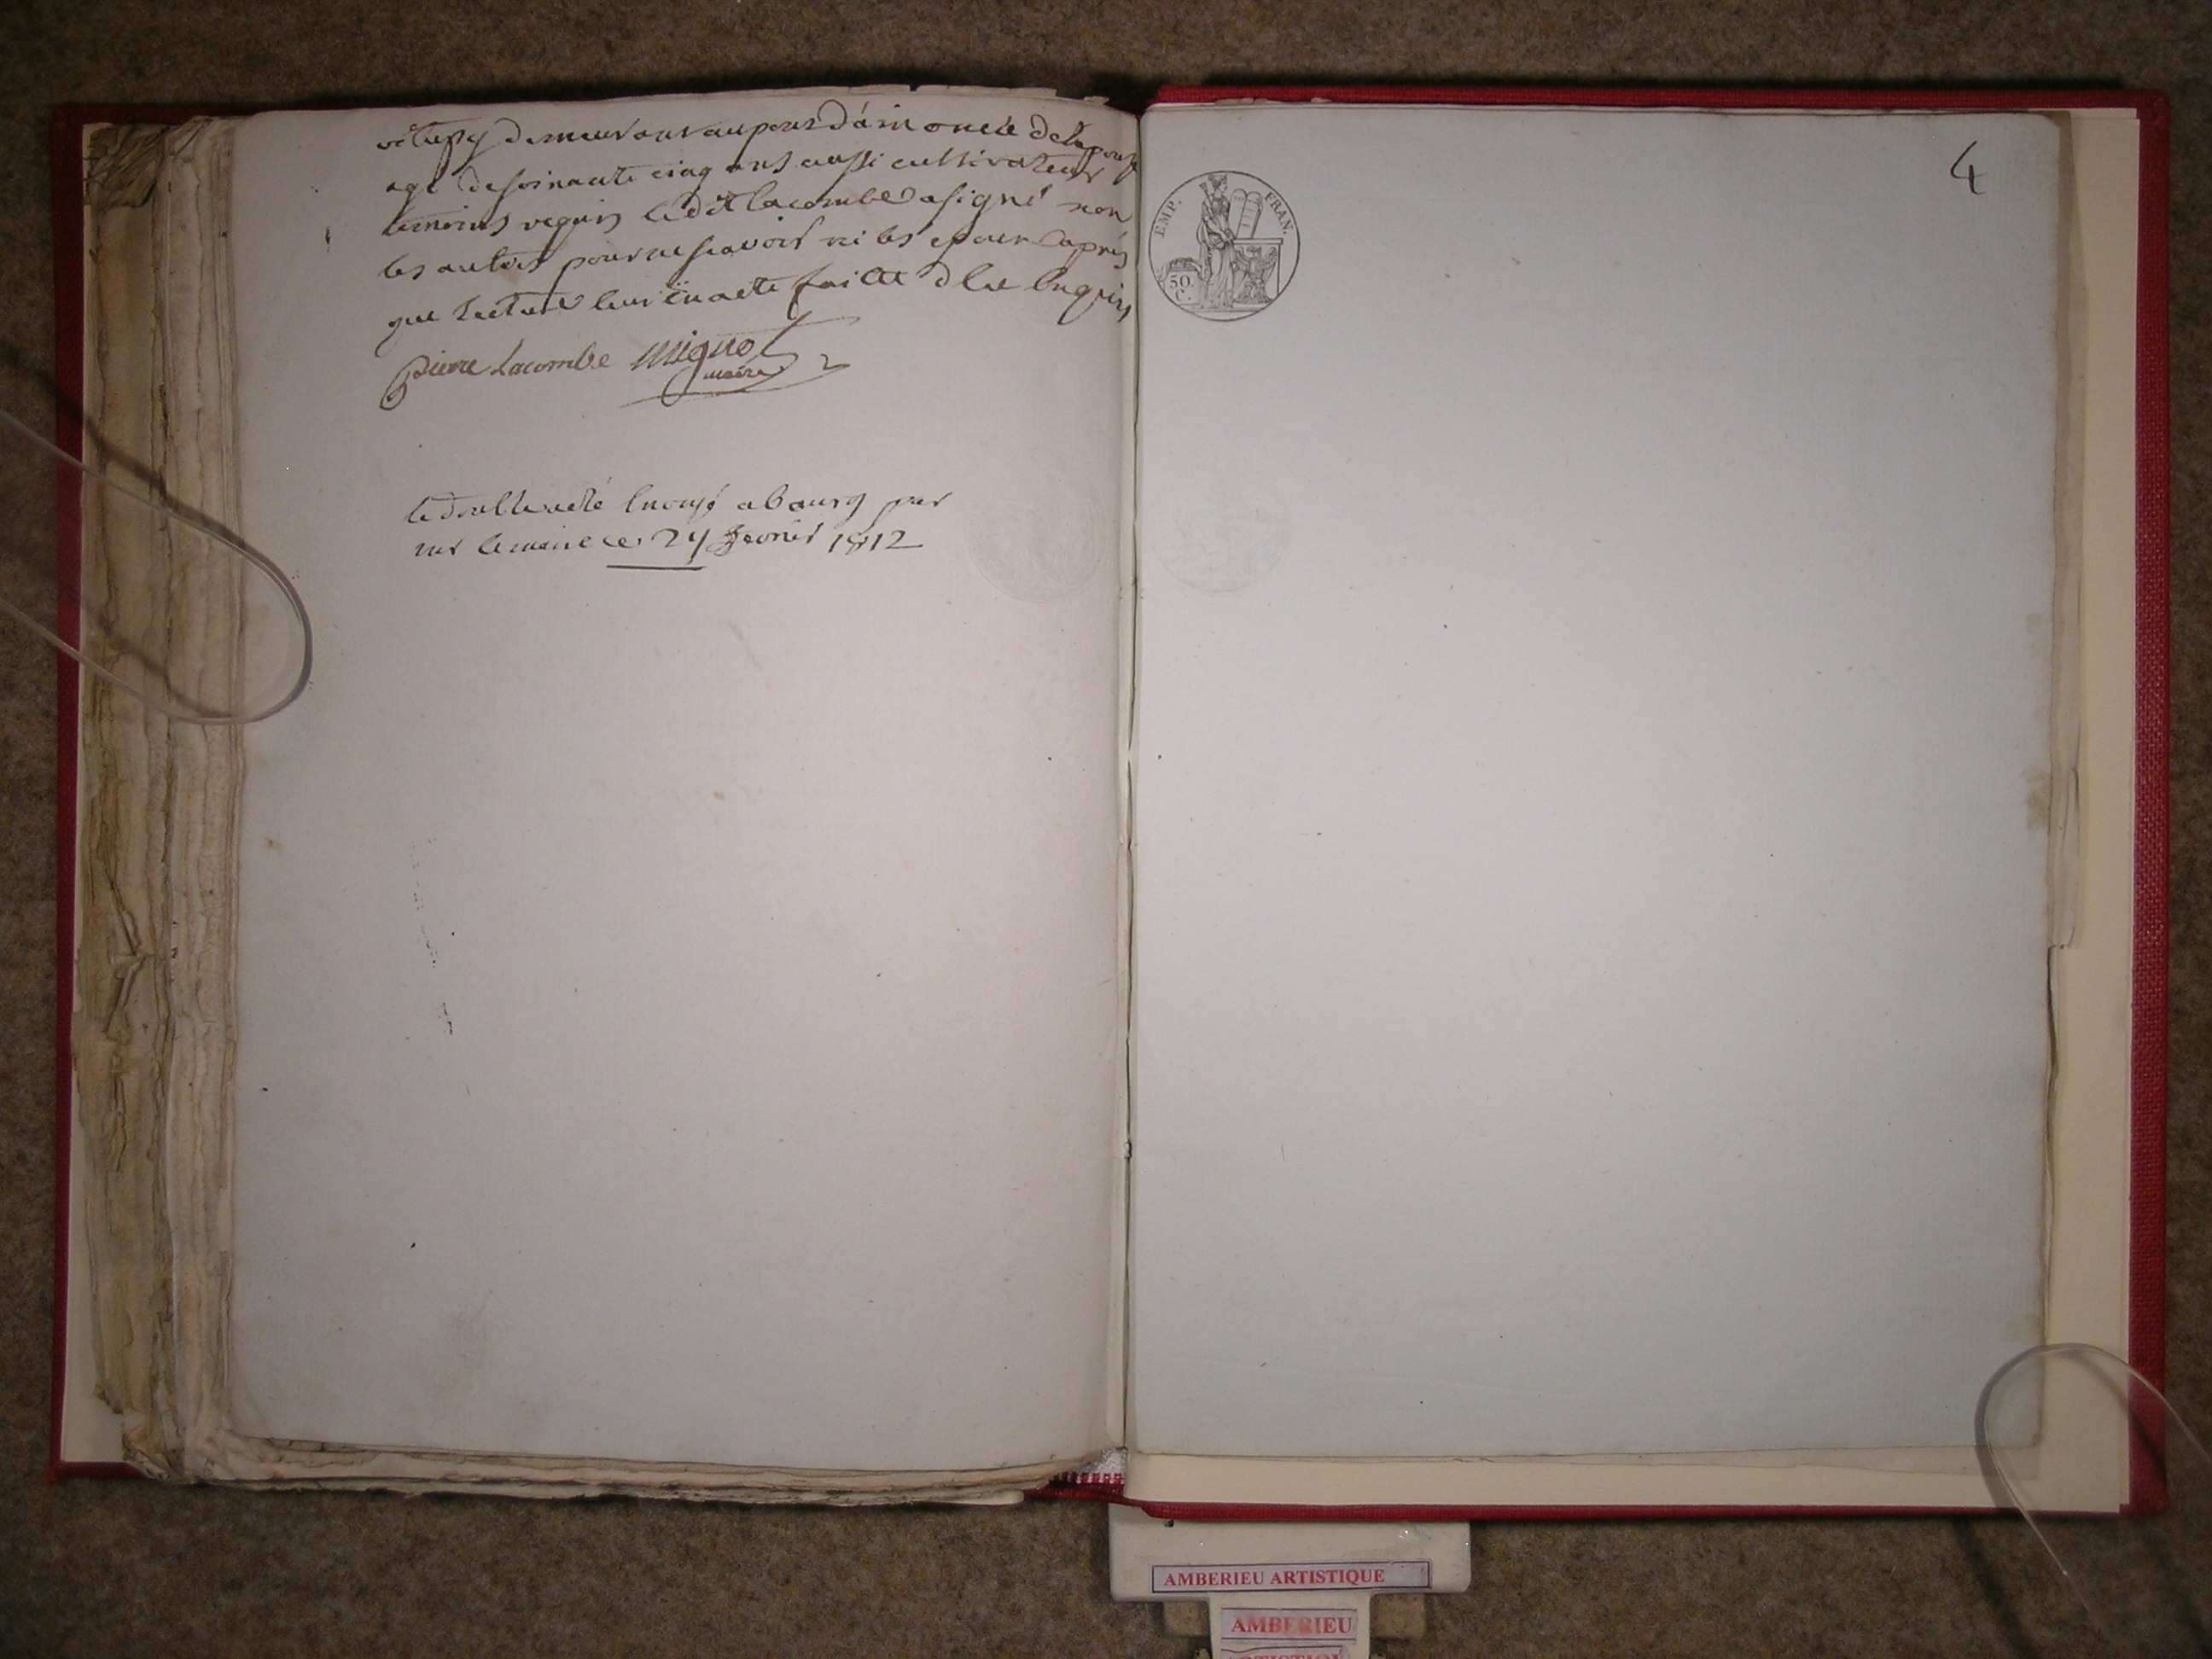 demeurant au pont d'ain oncle de lepouse
agé de soixante cinq ans aussi cultivateur
temoins requis ledit lacombe a signé non
les autres pour ne scavoir ni les epoux après
que lecture leur en a ete faitte
pierre Lacombe mignot
maire
le double a eté envoyé a bourg par
mr le maire ce 24 fevrier 1812
4
EMP. FRAN.
50
C.
AMBERIEU ARTISTIQUE
AMBERIEU
ARTISTIQUE